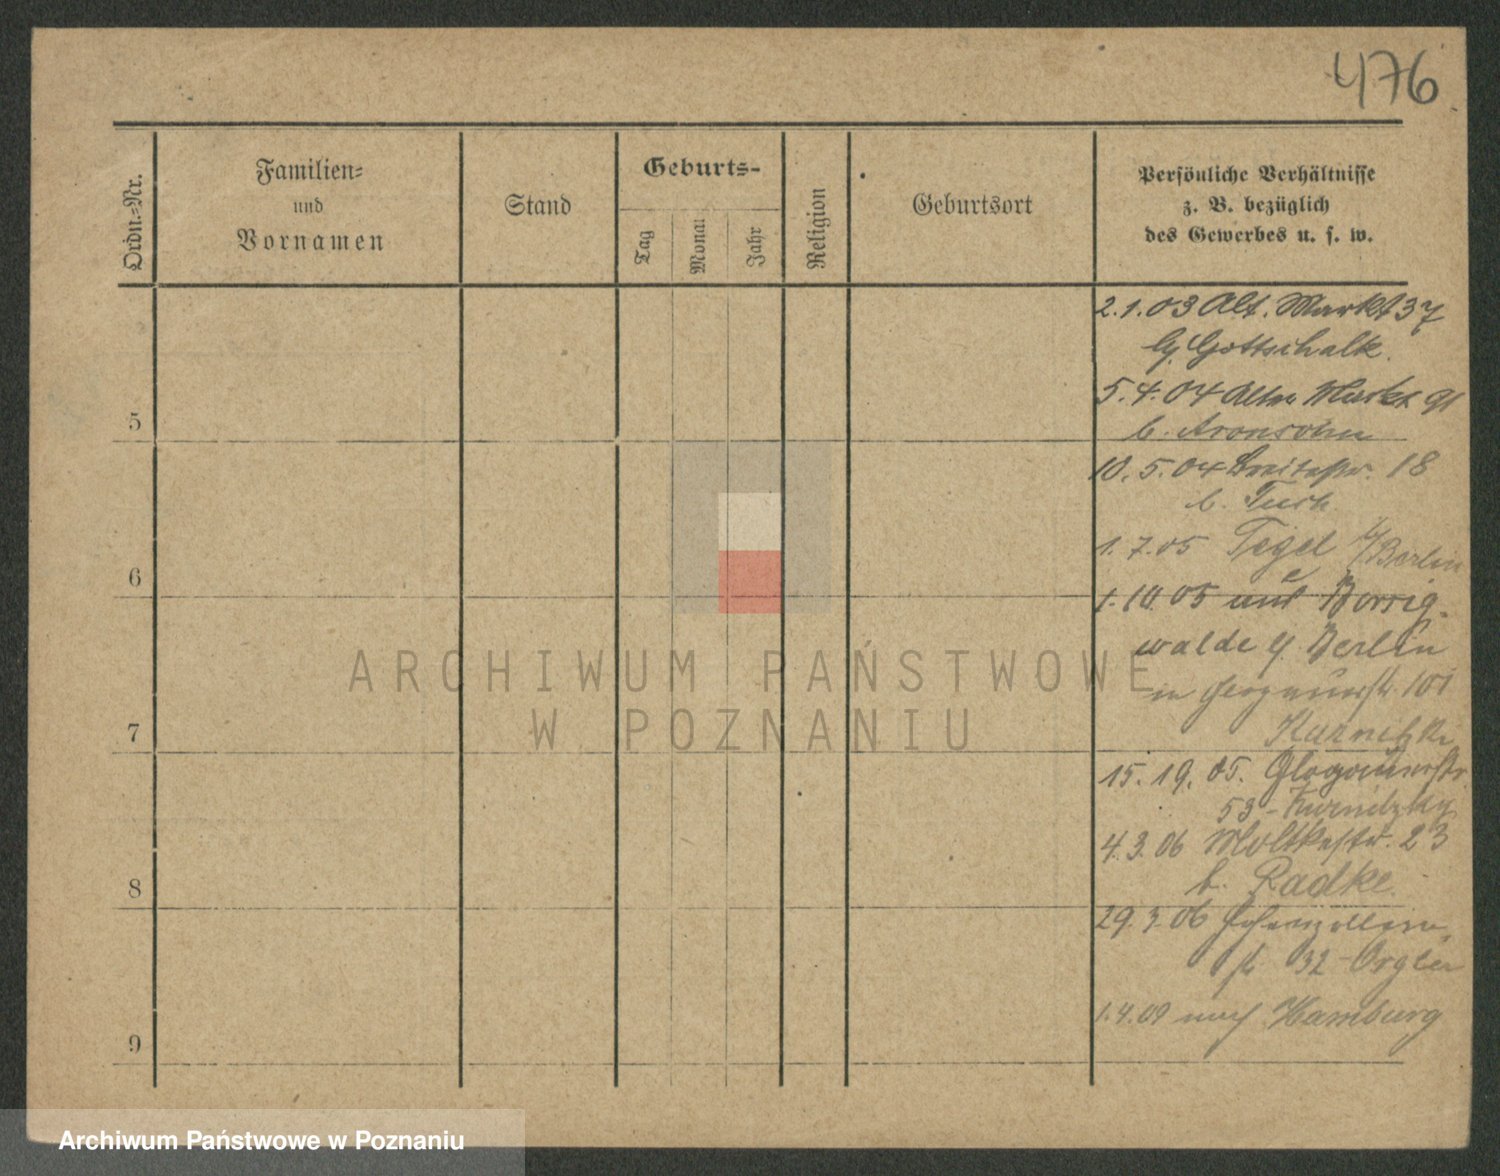 476
Ordn.=Nr.
Familien=
und
Vornamen
Stand
Geburts-
Tag
Monat
Jahr
Religion
Geburtsort
Persönliche Verhältnisse
z. B. bezüglich
des Gewerbes u. s. w.
2.1.03 Alt. Markt 37
Gottschalk.
5.4.04 Alter Markt 91
b. Aronsohn
5
10.5.04 Breitestr. 18
b. Tuch
1.7.05 Tegel b/Berlin
6
1.10.05 Borsig-
walde Berlin
101
7
15. 05. Glogauerstr
53 - Kurnitzky
4.3.06 Moltkestr. 23
8
b. Radke.
29.3.06 Hohenzollern
str 32 - Orgler
1.4.09 nach Hamburg
9
ARCHIWUM PAŃSTWOWE
W POZNANIU
Archiwum Państwowe w Poznaniu